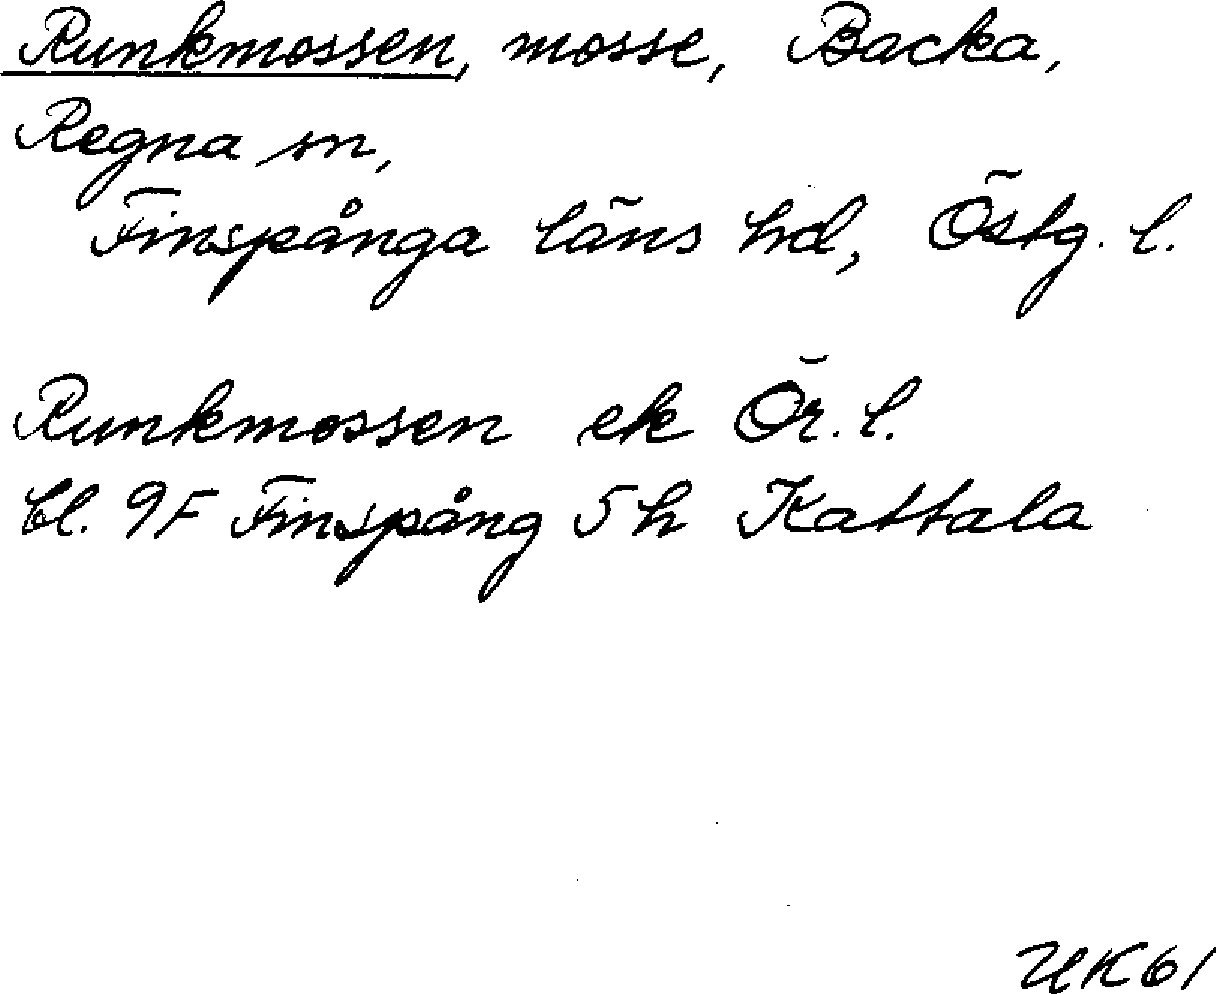 Runkmossen, mosse, Backa,
Regna sn,
Finspånga läns hd, Östg. l.
Runkmossen ek Ör. l.
bl. 9F Finspång 5h Kattala
UK61